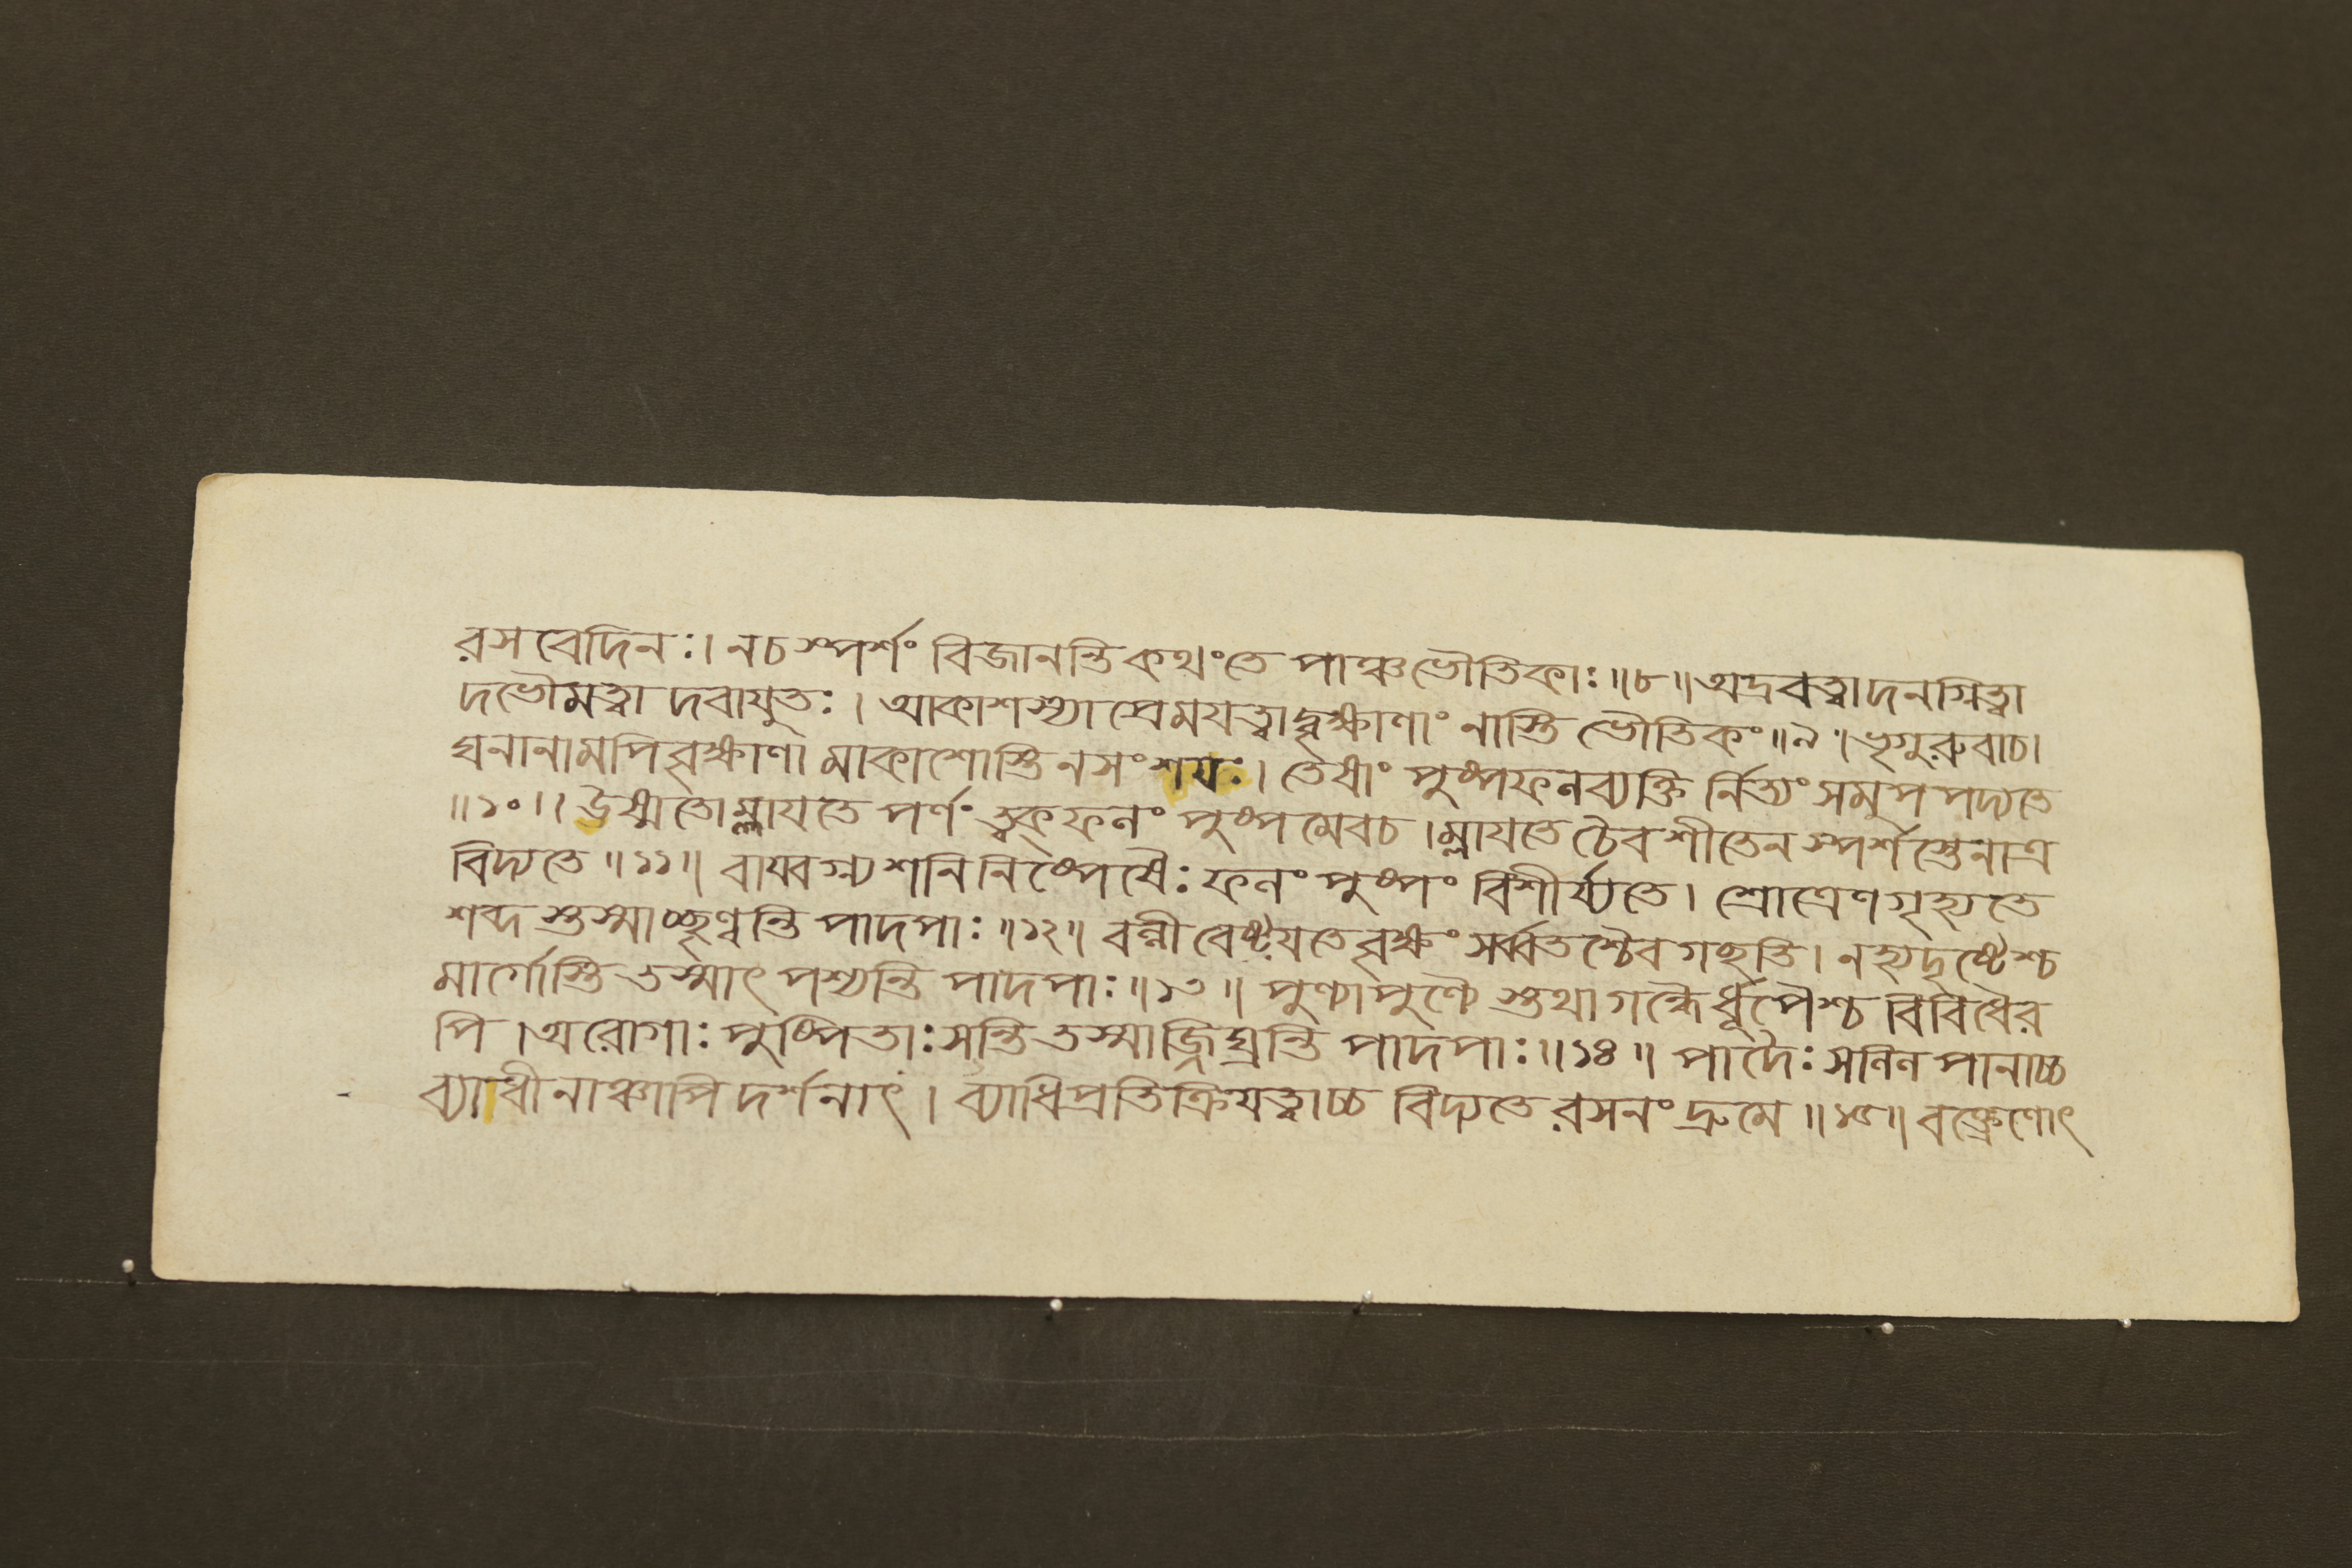 রসবেদিনঃ। নচ স্পর্শং বিজানন্তি কথংতে পাঞ্চভৌতিকাঃ॥৮॥ অদ্রবত্বাদনগ্নিত্বা
দভৌমত্বা দবাযুতঃ। আকাশস্যাপ্রেমযত্বাদ্বৃক্ষাণাং নাস্তি ভৌতিকং॥৯॥ ভৃগুরুবাচ।
ঘনানামপিবৃক্ষাণা মাকাশোস্তি নসংশযঃ। তেষাং পুষ্পফলব্যক্তি র্নিত্যং সমুপপদ্যতে
॥১০॥ ঊষ্মতোম্লাযতে পর্ণং ত্বক্ফলং পুষ্পমেবচ। ম্লাযতে চৈবশীতেন স্পর্শস্তেনাত্র
বিদ্যতে॥১১॥ বায্বগ্ন্যশনিনিষ্পেষৈঃ ফলং পুষ্পং বিশীর্য্যতে। শ্রোত্রেণগৃহ্যতে
শব্দ স্তস্মাচ্ছৃণ্বন্তি পাদপাঃ॥১২॥ বল্লীবেষ্টযতেবৃক্ষং সর্ব্বতশ্চৈব গছতি। নহ্যদৃষ্টেশ্চ
মার্গোস্তি তস্মাৎ পশ্যন্তি পাদপাঃ॥১৩॥ পুণ্যাপুণ্যৈ স্তথাগন্ধৈর্ধূপৈশ্চ বিবিধৈর
পি। অরোগাঃ পুষ্পিতাঃসন্তি তস্মাজ্জিঘ্রন্তি পাদপাঃ॥১৪॥ পাদৈঃ সলিল পানাচ্চ
ব্যাধীনাঞ্চাপি দর্শনাৎ। ব্যাধিপ্রতিক্রিযত্বাচ্চ বিদ্যতে রসনং দ্রুমে॥১৫॥ বক্ত্রেণোৎ